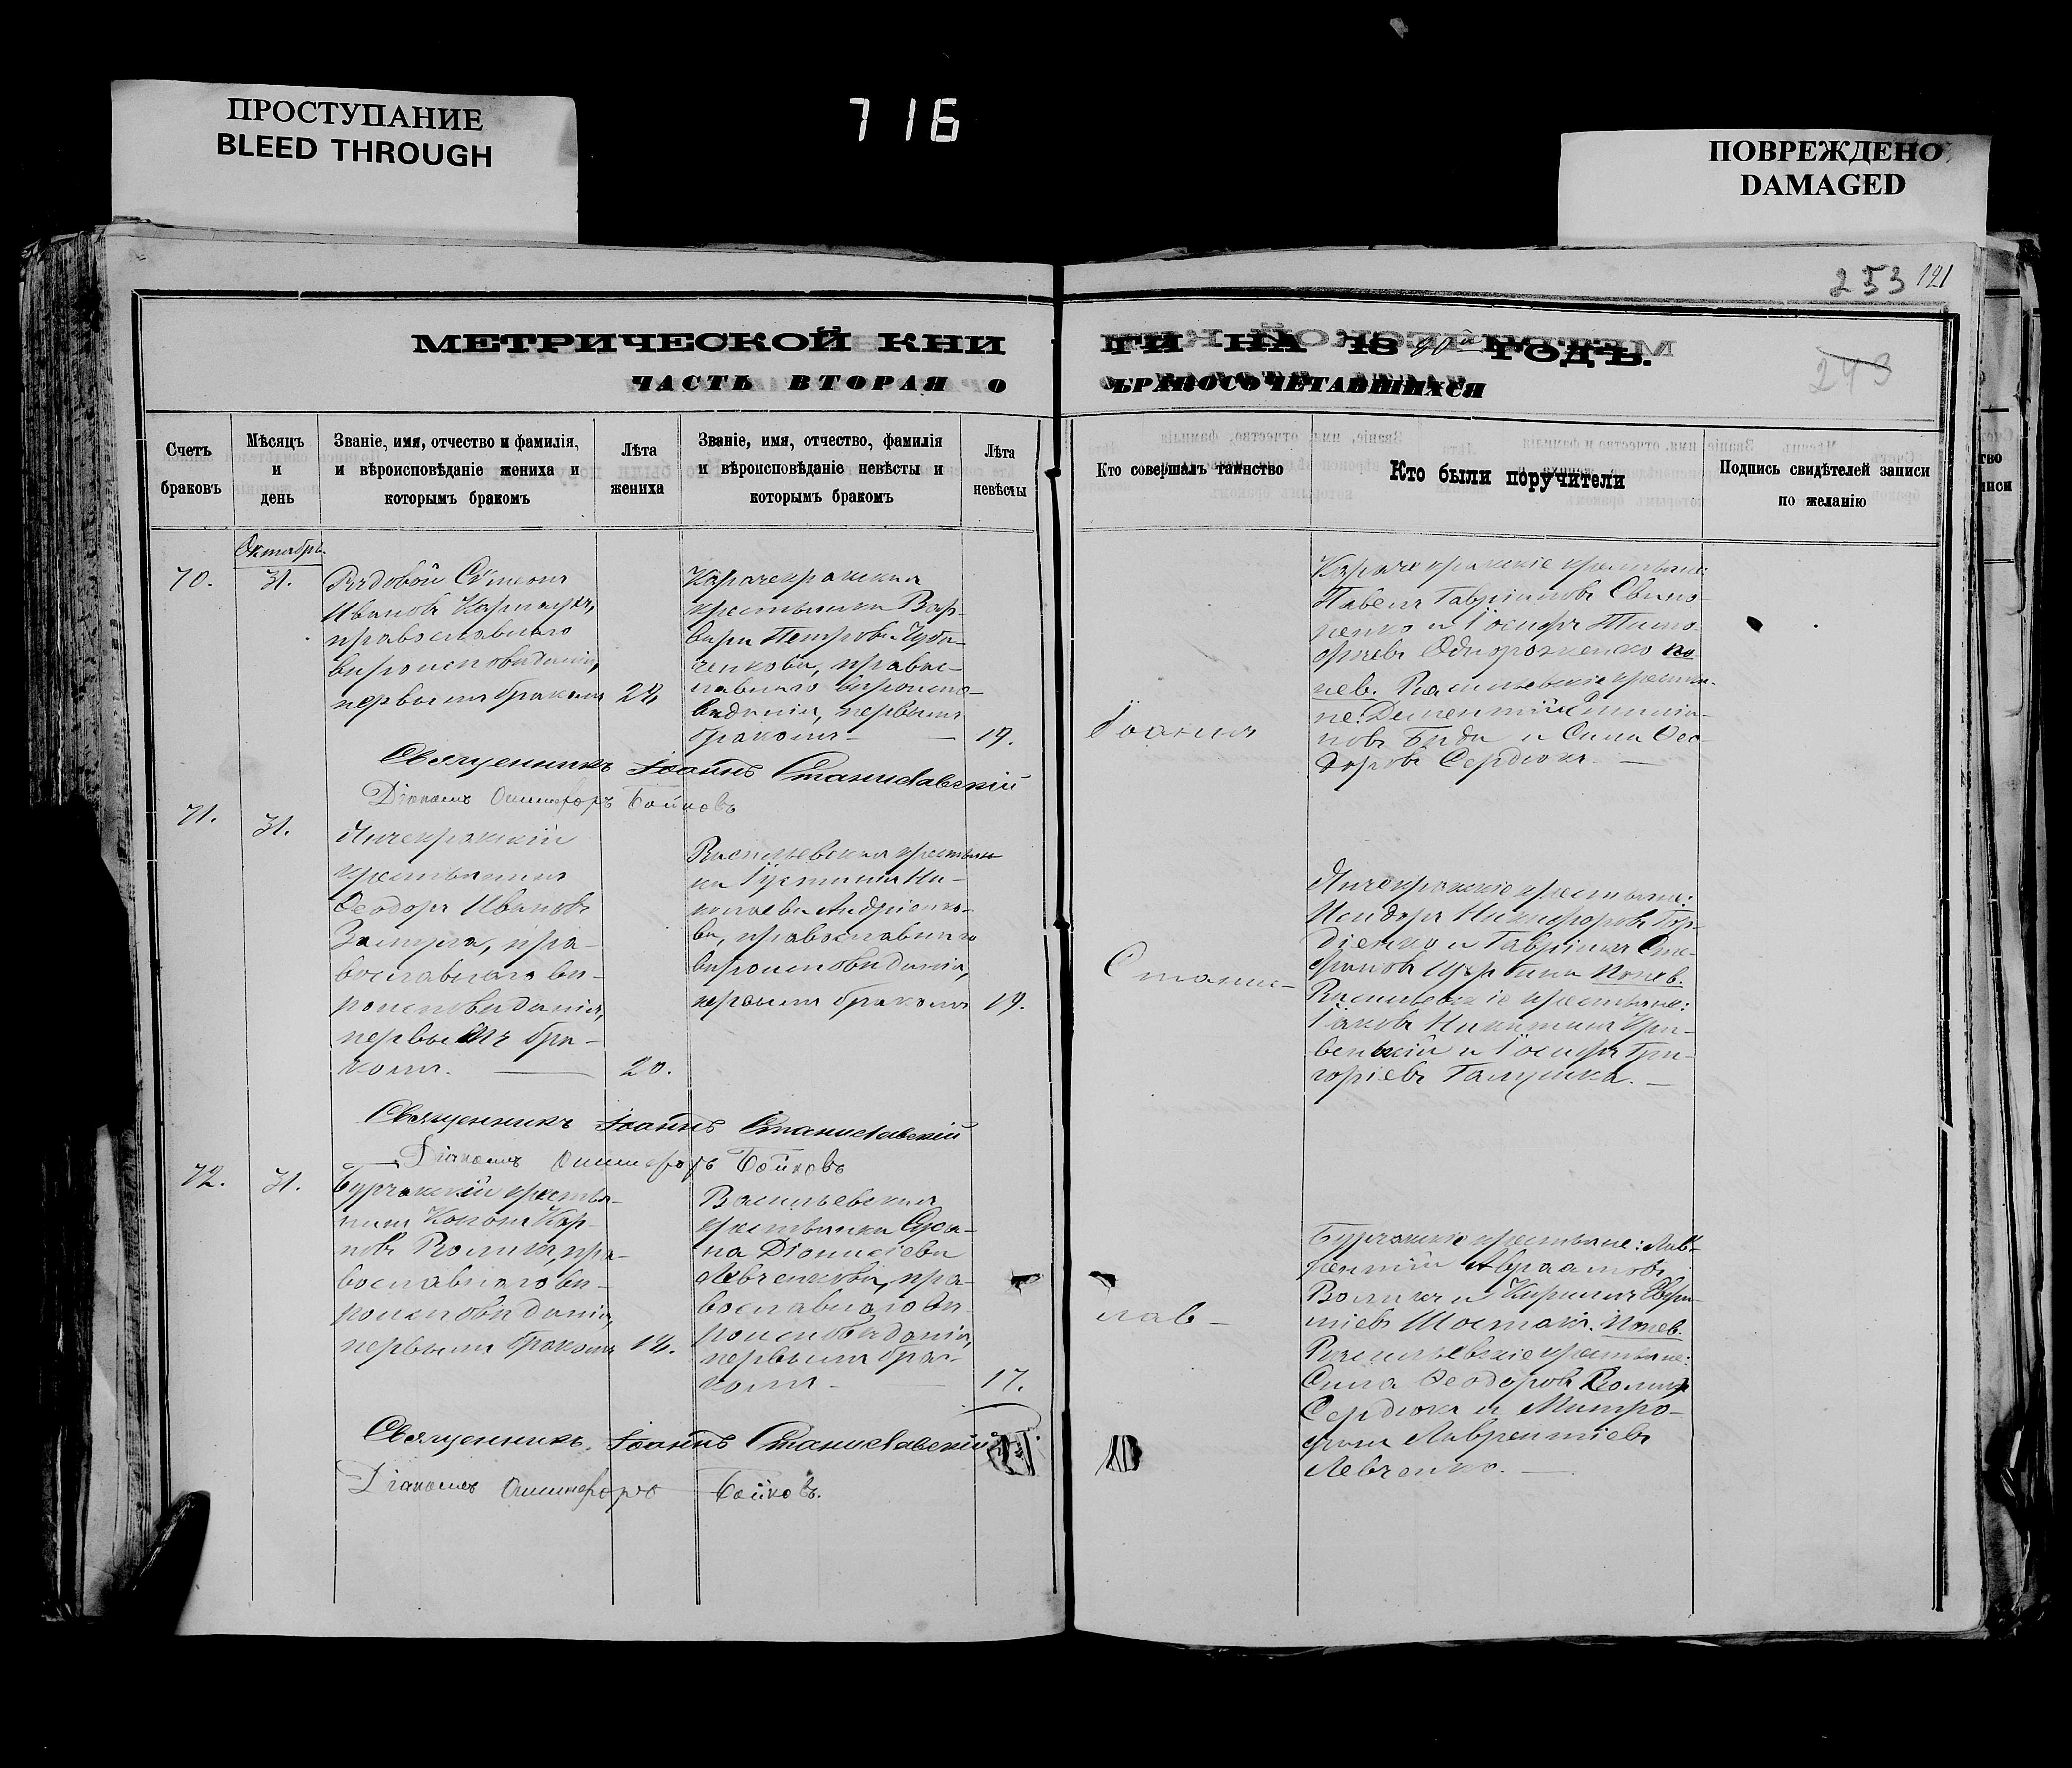 ПРОСТУПАНИЕ
BLEED THROUGH
716
ПОВРЕЖДЕНО
DAMAGED
253 121
243
МЕТРИЧЕСКОЙ КНИ
ГИ НА 18 90й ГОДЪ.
ЧАСТЬ ВТОРАЯ О
БРАКОСОЧЕТАВШИХСЯ
Счетъ
браковъ
Мѣсяцъ
и
день
Званіе, имя, отчество и фамилія,
и вѣроисповѣданіе жениха и
которымъ бракомъ
Лѣта
жениха
Званіе, имя, отчество, фамилія
и вѣроисповѣданіе невѣсты и
которымъ бракомъ
Лѣта
невѣсты
Кто совершалъ таинство
Кто были поручители
Подпись свидѣтелей записи
по желанію
Октябрь
70.
31.
Рядовой Сѵмеонъ
Ивановъ
православнаго
вѣроисповѣданія,
первымъ бракомъ
24
Карачекракская
крестьянка Вар-
вара Петрова Чуба-
ченкова, правос-
лавнаго вѣроиспо-
вѣданія, первымъ
бракомъ —
19.
Іоаннъ
Карачекракскіе крестьяне:
Павелъ Гавріиловъ Свино-
ренко и Іосифъ Тимо-
феевъ Однороженко по
нев. Васильевскіе крестья-
не: Дементій
новъ Бида и Сила Ѳео-
доровъ Сердюкъ. —
Священникъ Іоаннъ Станиславскій
Діаконъ Онисифоръ Бойковъ
71.
31.
Янчекракскій
крестьянинъ
Ѳеодоръ Ивановъ
Замула, пра-
вославнаго вѣ-
роисповѣданія,
первымъ бра-
комъ. —
20.
Васильевская крестьян
ка Іустина Ни-
колаева Андріенко-
ва, православнаго
вѣроисповѣданія,
первымъ бракомъ
19.
Станис-
Янчекракскіе крестьяне:
Исидоръ Никифоровъ Гор-
діенко и Гавріилъ Сте-
фановъ понев.
Васильевскіе крестьяне:
Іаковъ Никитинъ Кри-
венькій и Іосифъ Гри-
горіевъ Галушка. —
Священникъ Іоаннъ Станиславскій
Діаконъ Онисифоръ Бойковъ
72.
31.
Бурчакскій крестья-
нинъ Кононъ Кар-
повъ Воликъ, пра-
вославнаго вѣ-
роисповѣданія,
первымъ бракомъ
Васильевская
крестьянка Суса-
на Діонисіева
Левченкова, пра-
вославнаго вѣ-
роисповѣданія,
первымъ бра-
комъ —
17.
лав-
Бурчакскіе крестьяне: Лав-
рентій Авраамовъ
Воликъ и Кириллъ
Шостакъ. понев.
Васильевскіе крестьяне:
Сила Ѳеодоровъ
Сердюкъ и Митро-
фанъ Лаврентіевъ
Левченко. —
Священникъ Іоаннъ Станиславскій
Діаконъ Онисифоръ Бойковъ.